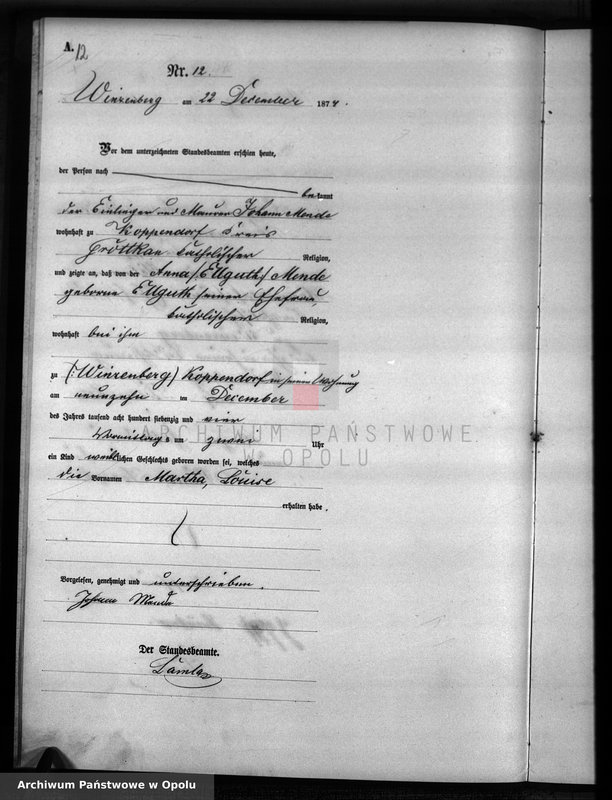 A.
12
Nr. 12.
Winzenberg am 22 December 1874.
Vor dem unterzeichneten Standesbeamten erschien heute,
der Person nach
bekannt
der Einlieger und Maurer Johann Mende
wohnhaft zu Koppendorf Kreis
Grottkau katholischer Religion,
und zeigte an, daß von der Anna /Ellguth/ Mende
geborne Ellguth seiner Ehefrau,
katholischer Religion,
wohnhaft bei ihm
zu (Winzenberg) Koppendorf in seiner Wohnung
am neunzehn ten December
des Jahres tausend acht hundert siebenzig und vier
Vormittags um zwei Uhr
ein Kind weiblichen Geschlechts geboren worden sei, welches
die Vornamen Martha, Louise
erhalten habe.
Vorgelesen, genehmigt und unterschrieben.
Johann Mende
Der Standesbeamte.
ARCHIWUM PAŃSTWOWE
W OPOLU
Archiwum Państwowe w Opolu